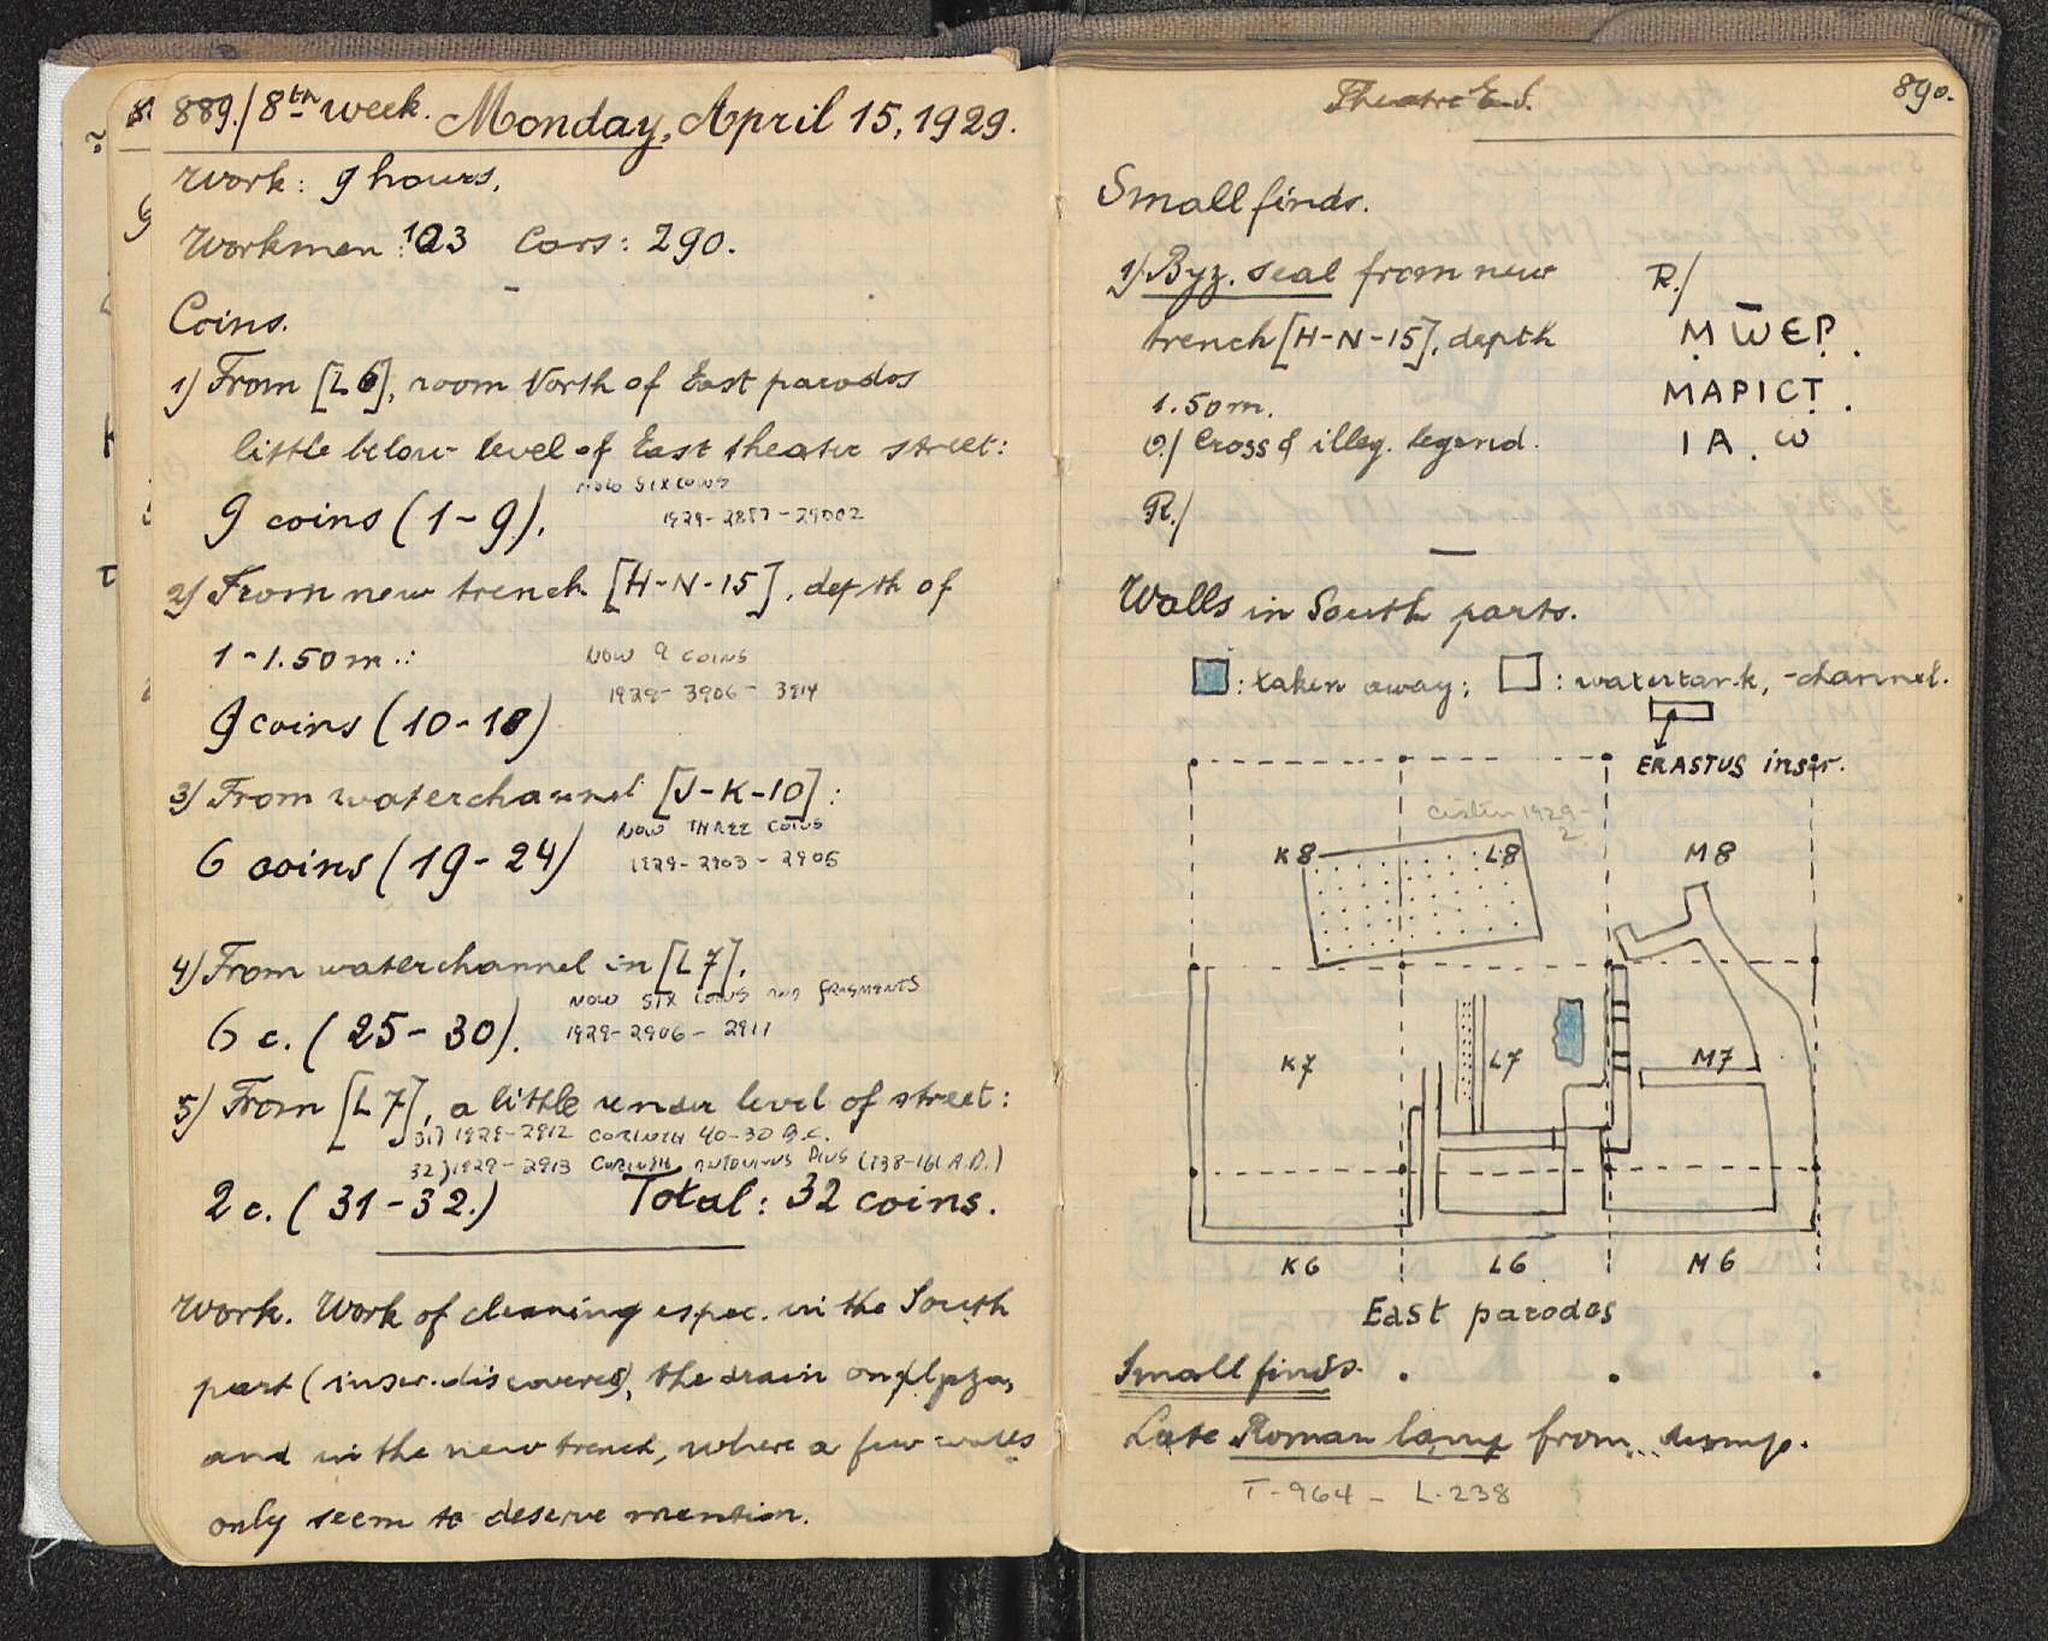 889./ 8th week. Monday, April 15, 1929.
Work: 9 hours.
Workmen: 103 Cars: 290.
Coins.
1) From [L6], room North of East parodos
little below level of East theater street:
NOW SIX COINS
9 coins (1-9).
1929-2897-29002
2) From new trench [H-N-15], depth of
1-1.50 m.:
NOW 9 COINS
1929-3906-3914
9 coins (10-18)
3) From waterchannel [J-K-10]:
NOW THREE COINS
6 coins (19-24)
1929-2903-2905
4) From waterchannel in [L7],
NOW SIX COINS AND FRAGMENTS
6 c. (25-30).
1929-2906-2911
5) From [L7], a little under level of street:
31) 1929-2912 CORINTH 40-30 B.C.
32) 1929-2913 CORINTH, ANTONINUS PIUS (138-161 A.D.)
2 c. (31-32.) Total: 32 coins.
Work. Work of cleaning espec. in the South
part (inscr. discovered), the drain on plaza,
and in the new trench, where a few walls
only seem to deserve mention.
Theatre E. S. 890.
Small finds.
1) Byz. seal from new
trench [H-N-15], depth
1.50 m.
O./ Cross & illeg. legend.
R./
R./
M W̄ E P.
MAPICT.
I A . ω
Walls in South parts.
: taken away; : watertank, -channel.
ERASTUS inscr.
Cistern 1929-
2
K8 L8 M8
K7 L7 M7
K6 L6 M6
East parodos
Small finds.
Late Roman lamp from dump.
T-964 - L-238